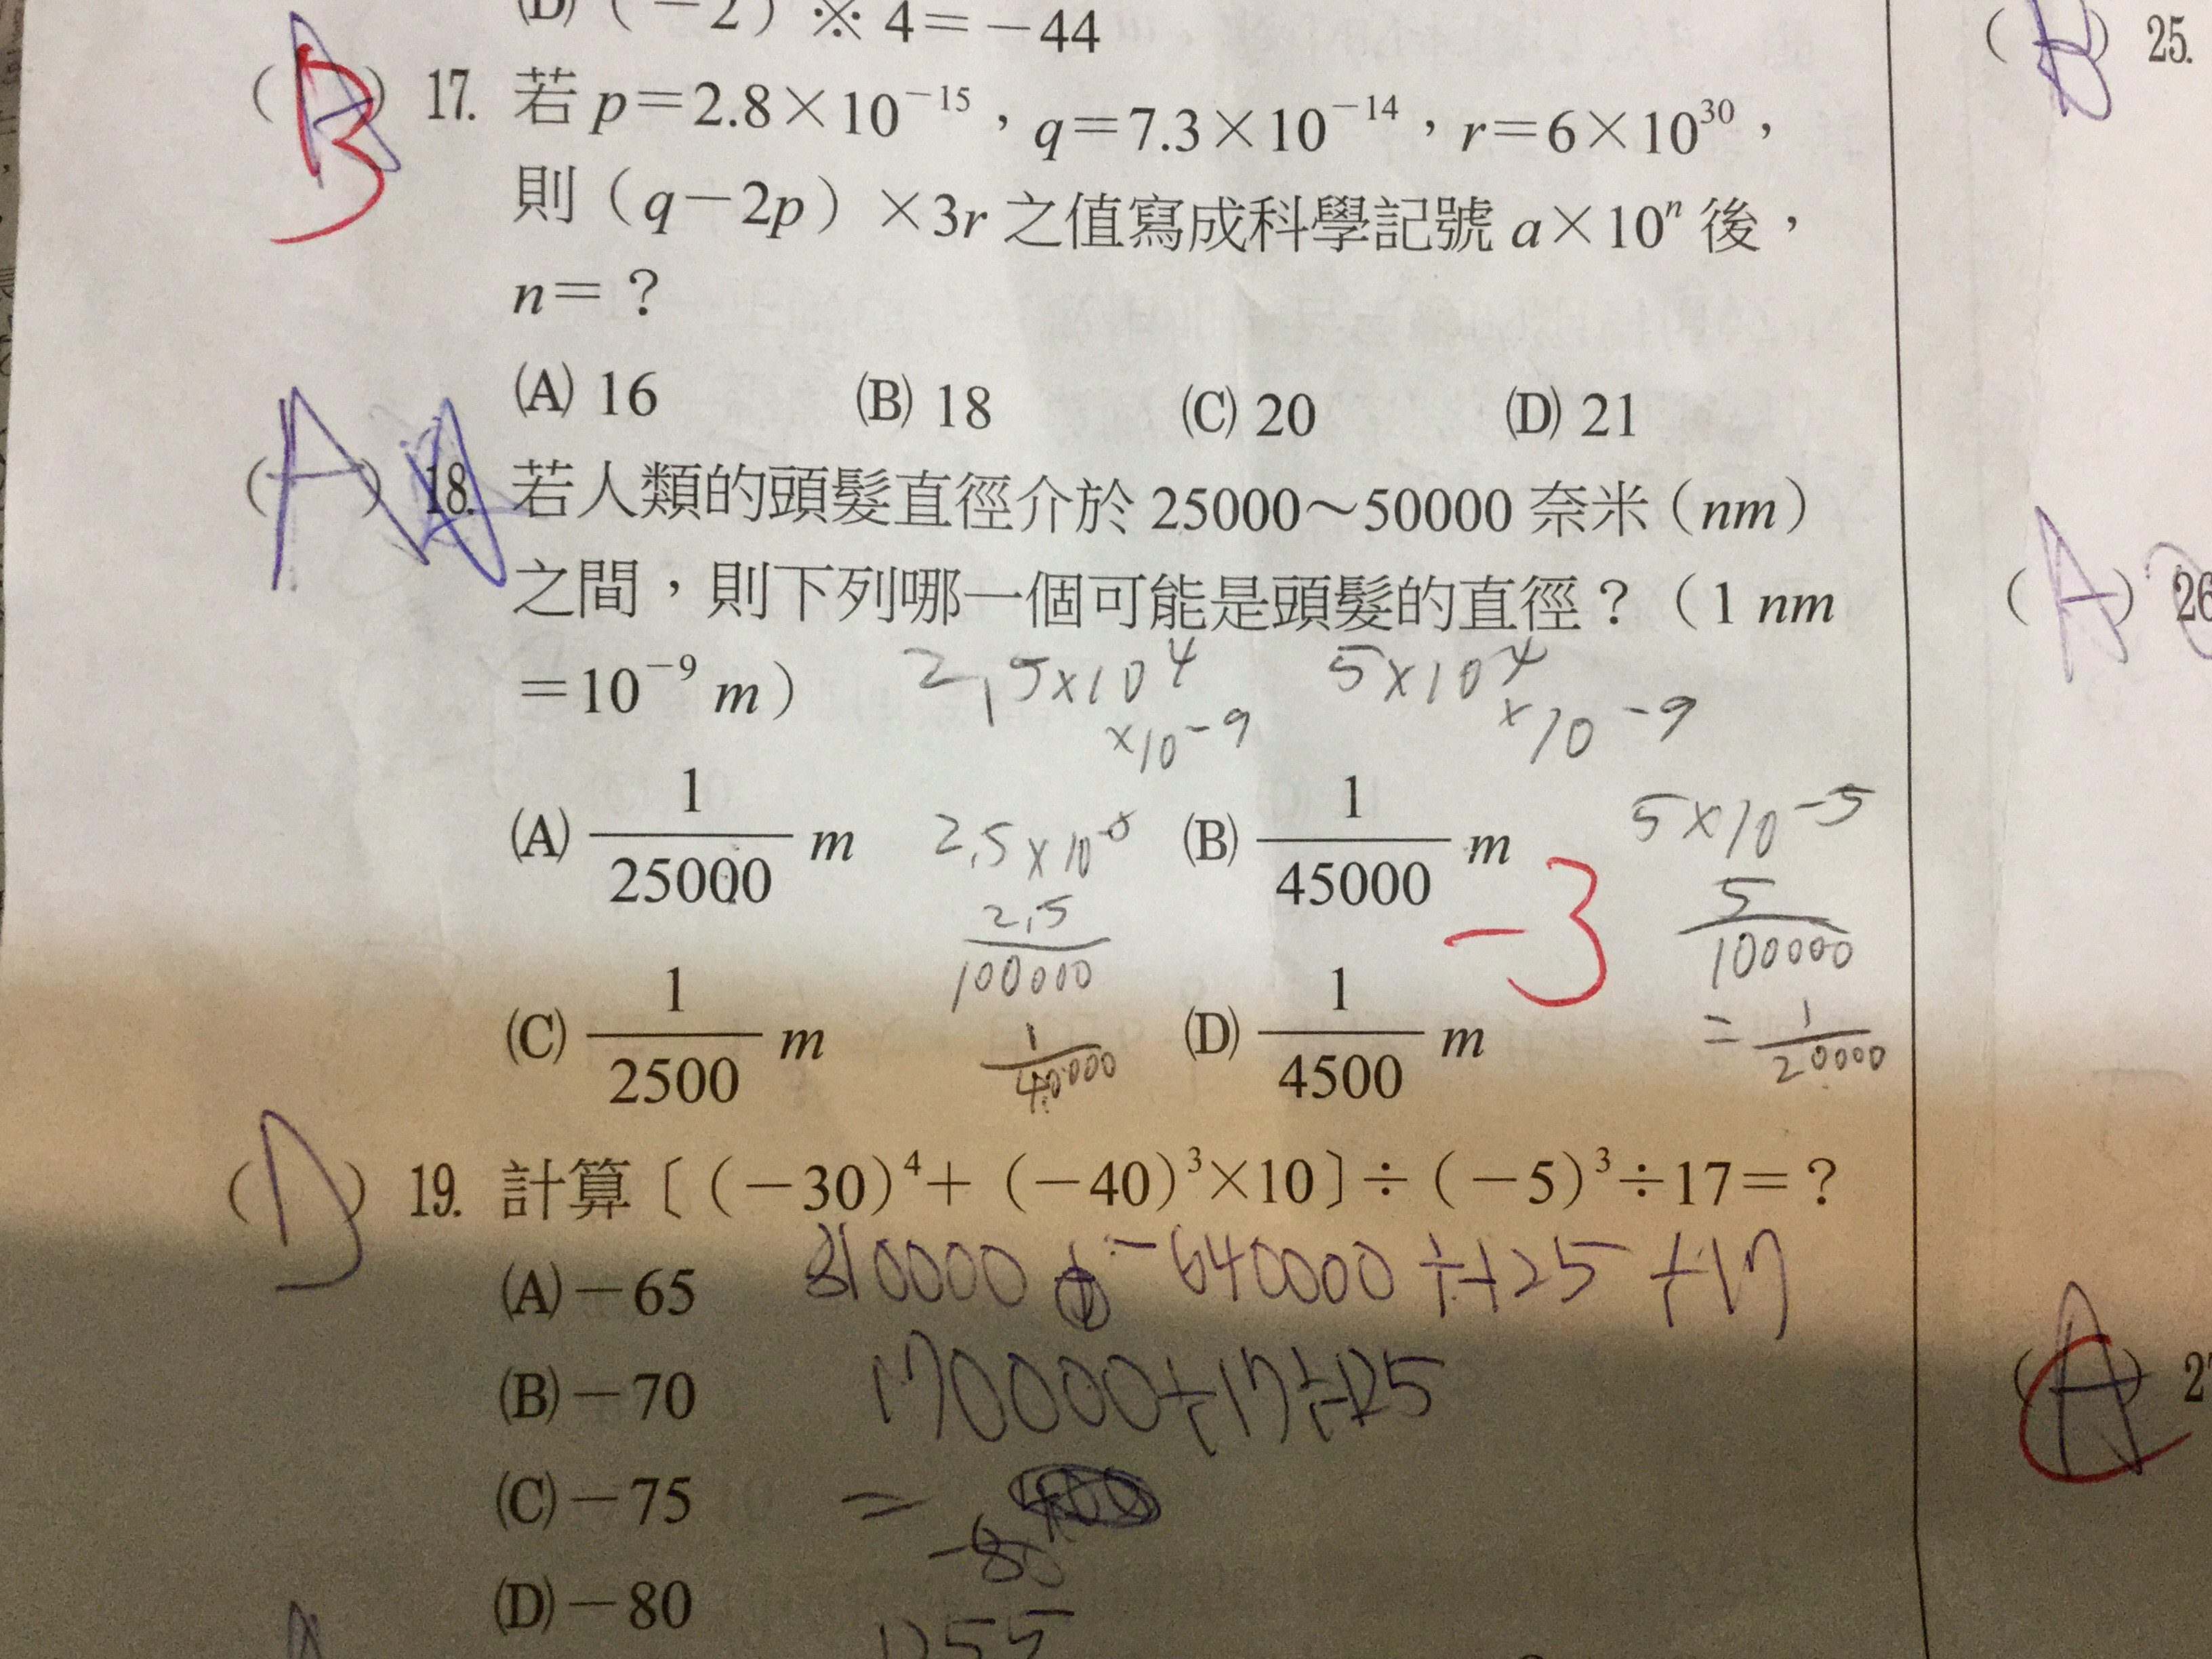 (D)(−2)※4=−44
(A) B 17. 若p=2.8×10⁻¹⁵,q=7.3×10⁻¹⁴,r=6×10³⁰,
則(q−2p)×3r之值寫成科學記號a×10ⁿ後,
n=?
(A) 16 (B) 18 (C) 20 (D) 21
(A) 18. 若人類的頭髮直徑介於25000~50000奈米(nm)
之間,則下列哪一個可能是頭髮的直徑?(1 nm
=10⁻⁹ m) 2.5×10⁴ 5×10⁴
×10⁻⁹ ×10⁻⁹
(A) 1/25000 m (B) 1/45000 m 5×10⁻⁵
2.5/100000 −3 5/100000
(C) 1/2500 m 1/40000 (D) 1/4500 m =1/20000
(D) 19. 計算〔(−30)⁴+(−40)³×10〕÷(−5)³÷17=?
(A)−65 810000 + −640000÷−125÷17
(B)−70 170000÷17÷−125
(C)−75 =
−80
(D)−80
( ) 25.
(A) 26
(A) C 27